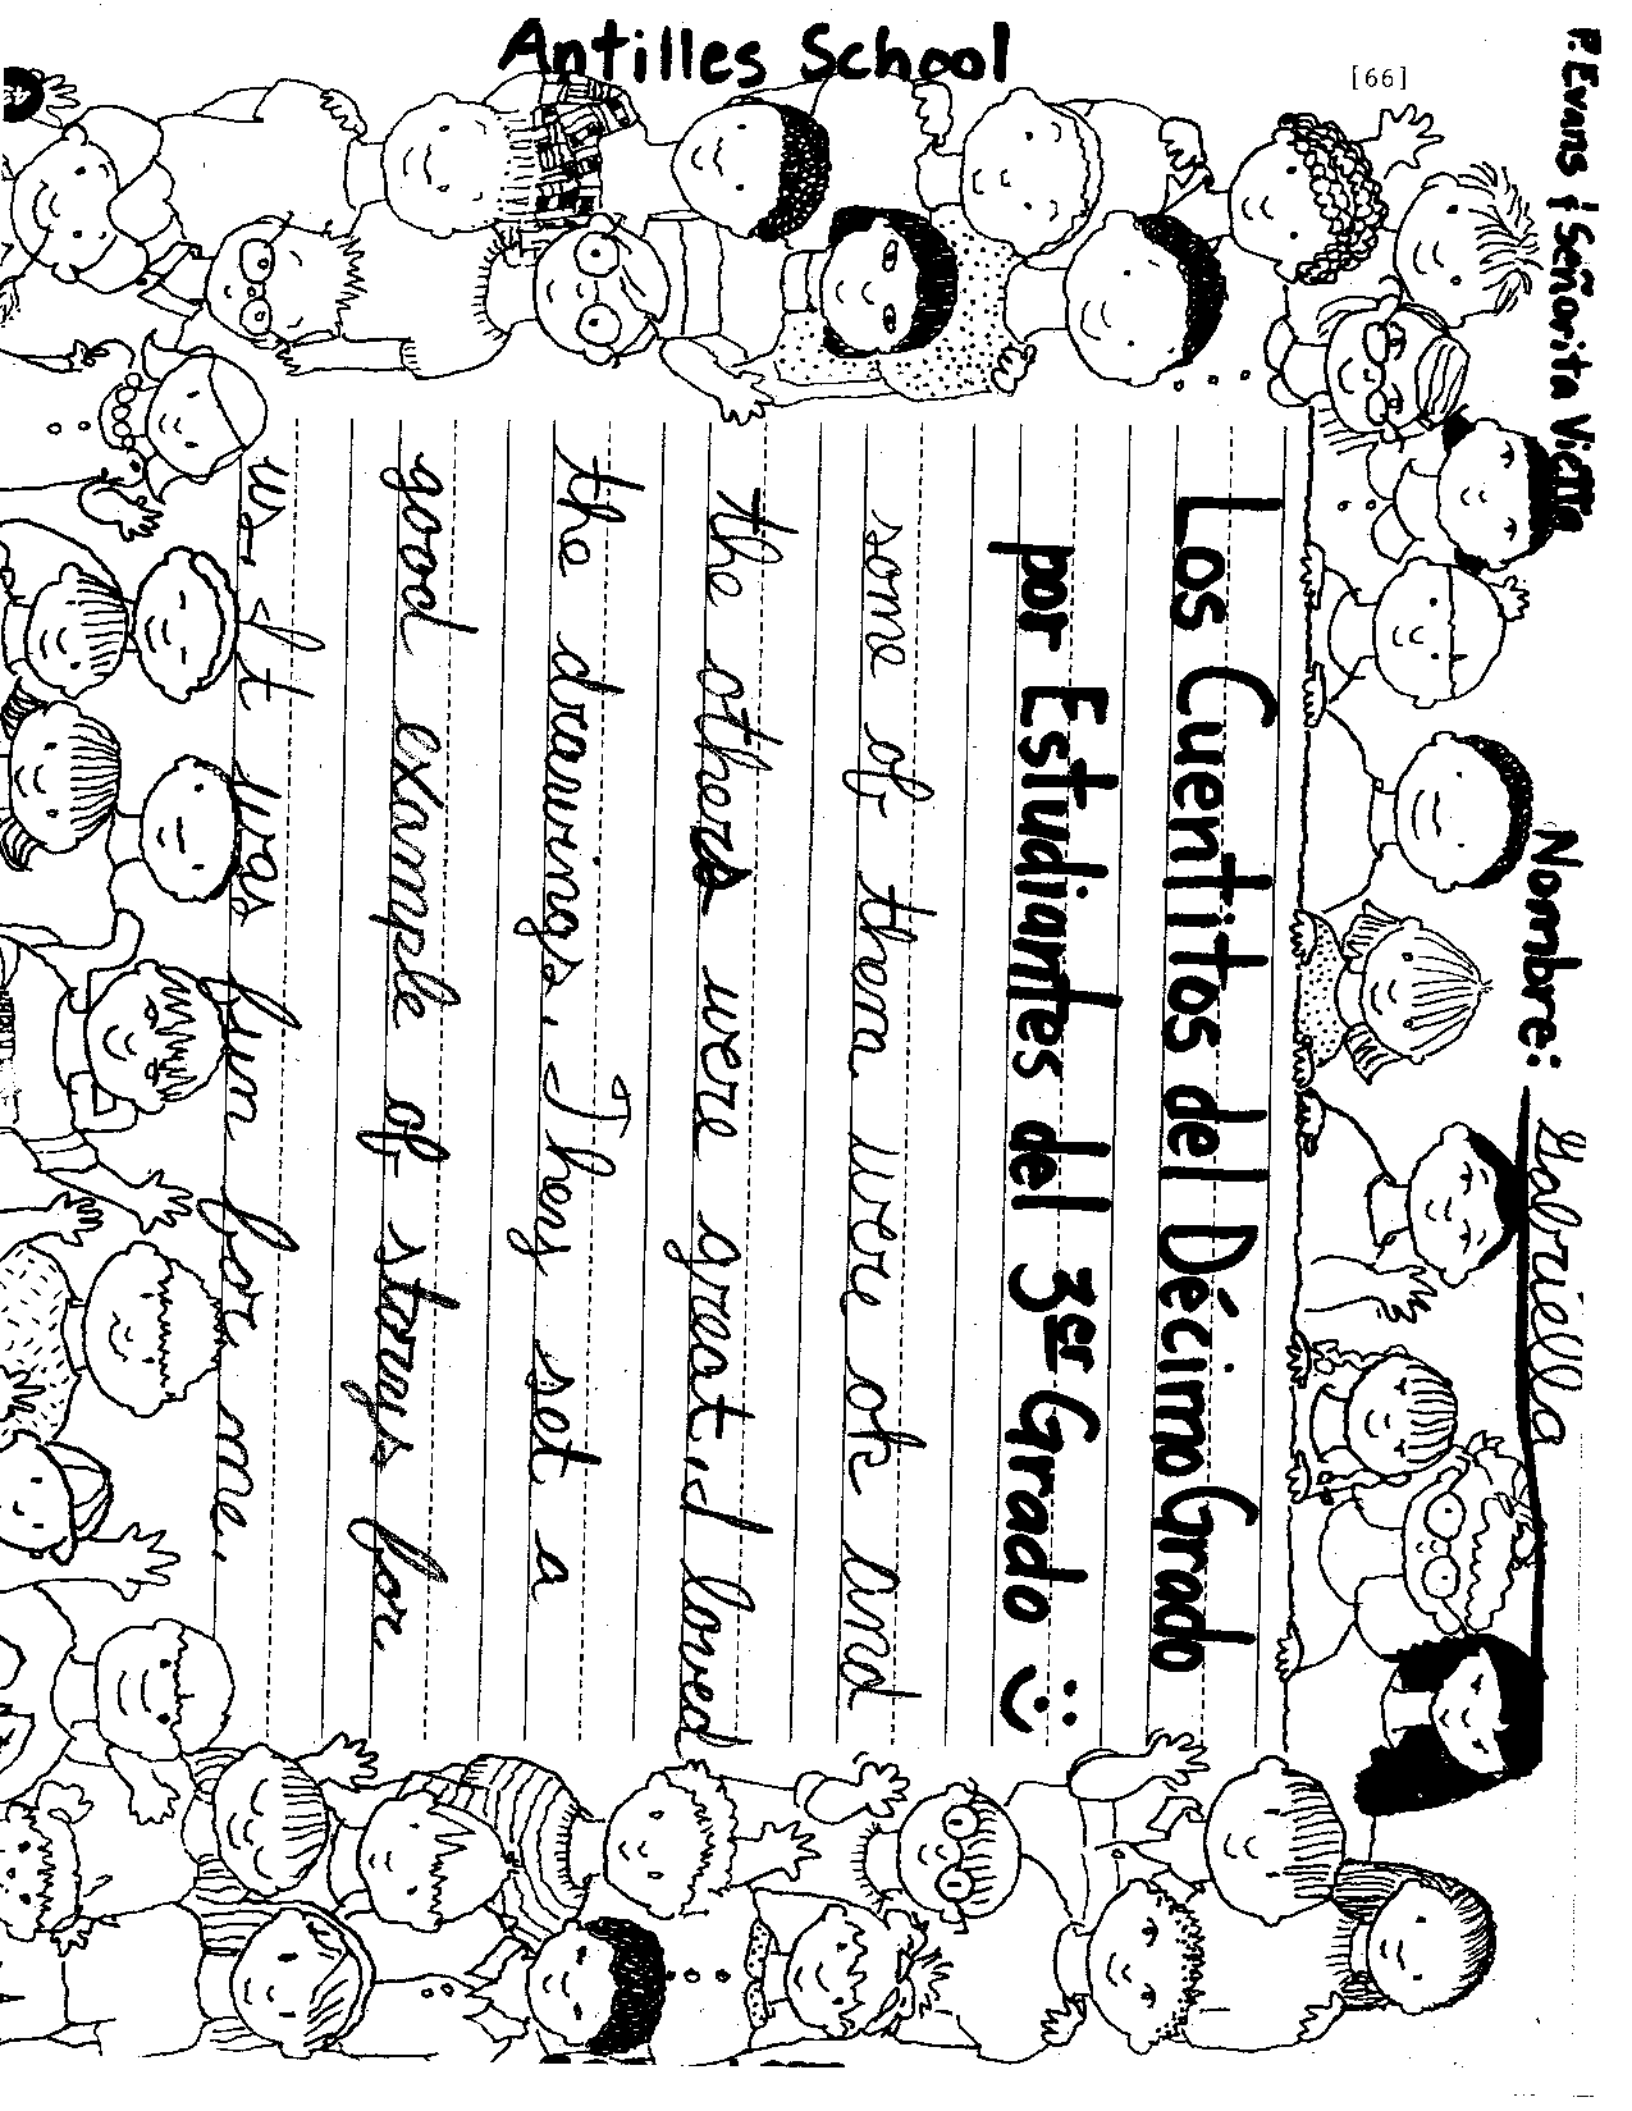 Antilles School
[66]
P. Evans & Señorita Vietta
Nombre: Gabriella
Los Cuentitos del Décimo Grado
por Estudiantes del 3er Grado
some of them were ok and
the others were great, I loved
the drawings. They set a
good example of storys for
us. It was fun for me.